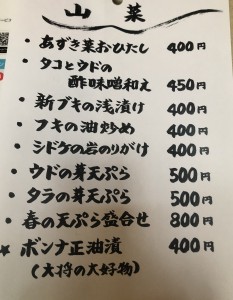 山菜
• あずき菜おひたし 400円
• タコとウドの
酢味噌和え 450円
• 新ブキの浅漬け 400円
• フキの油炒め 400円
• シドケの岩のりがけ 400円
• ウドの芽天ぷら 500円
• タラの芽天ぷら 500円
• 春の天ぷら盛合せ 800円
★ ボンナ正油漬 400円
(大将の大好物)